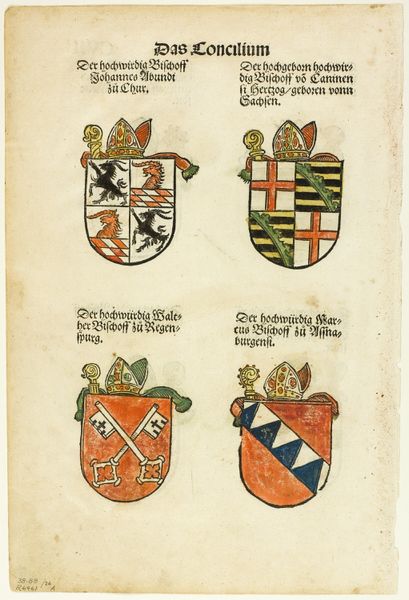 Das Concilium
Der hochwirdig Bischoff
Johannes Abundi
zů Chur.
Der hochgeborn hochwir-
dig Bischoff võ Caminen
si Hertzog/geboren vonn
Sachsen.
Der hochwürdig Walt-
her Bischoff zů Regen-
spurg.
Der hochwürdig Mar-
cus Bischoff zů Assna-
burgensi.
38-88
R6461